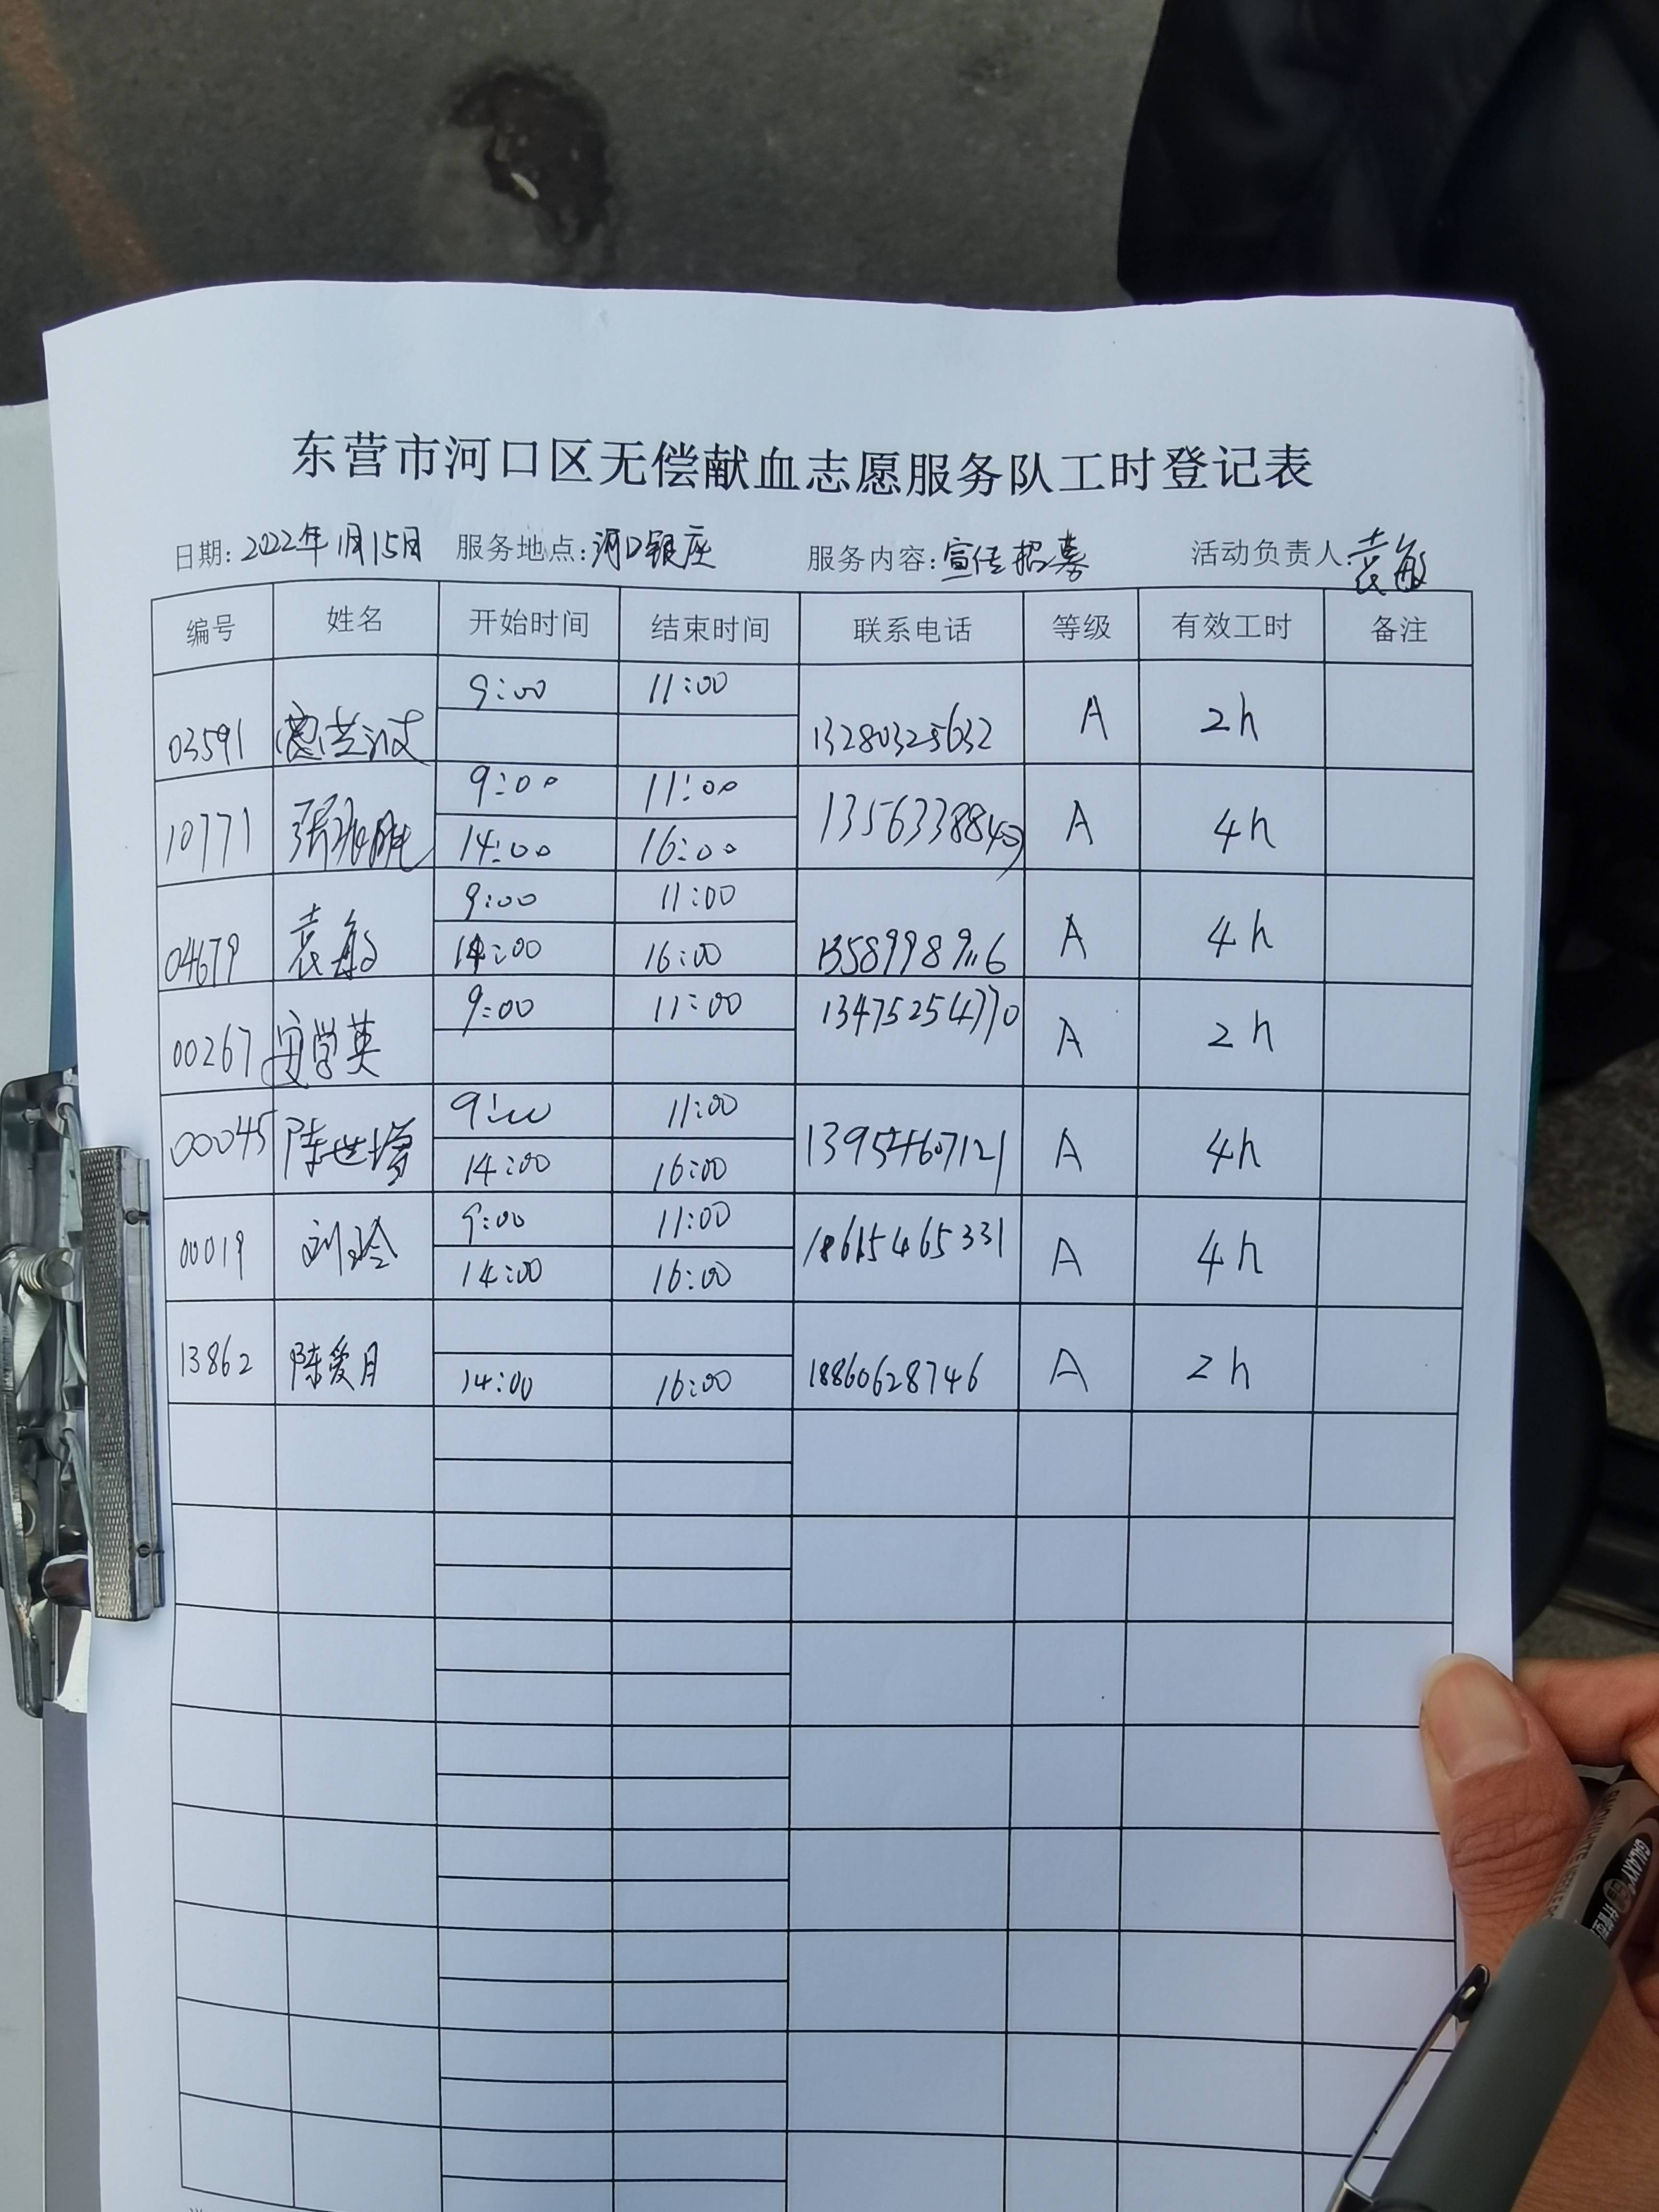 东营市河口区无偿献血志愿服务队工时登记表
日期: 2022年1月15日 服务地点: 河口银座 服务内容: 宣传招募 活动负责人: 袁敏
编号 姓名 开始时间 结束时间 联系电话 等级 有效工时 备注
03591 9:00 11:00 13280325632 A 2h
10771 9:00 11:00 A 4h
14:00 16:00
04679 袁敏 9:00 11:00 A 4h
14:00 16:00
00267 安学英 9:00 11:00 13475254770 A 2h
00045 陈世增 9:00 11:00 13954607121 A 4h
14:00 16:00
00019 刘玲 9:00 11:00 18615465331 A 4h
14:00 16:00
13862 陈爱月 14:00 16:00 18860628746 A 2h
GALAXY